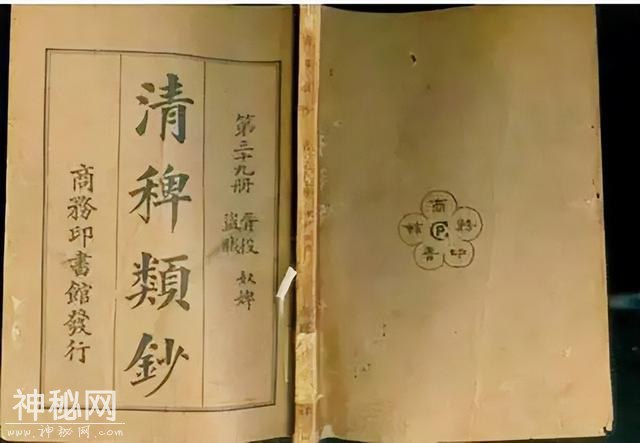 第三十九册
胥役 奴婢
盜賊
清稗類鈔
商務印書館發行
商
印
書
CP
神秘网
WWW.神秘网.COM